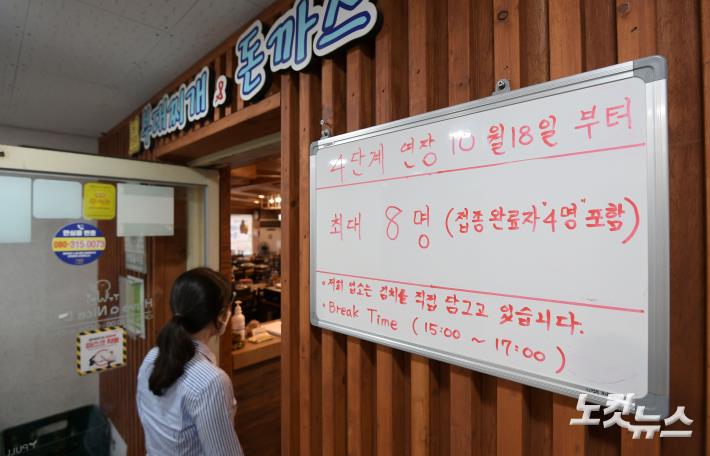 부대찌개 & 돈까스
4단계 연장 10월18일 부터
최대 8명 (접종완료자 "4명" 포함)
• 저희 업소는 김치를 직접 담그고 있습니다.
• Break Time (15:00 ~ 17:00)
안심콜 번호
080-315-0073
Nice
노컷뉴스